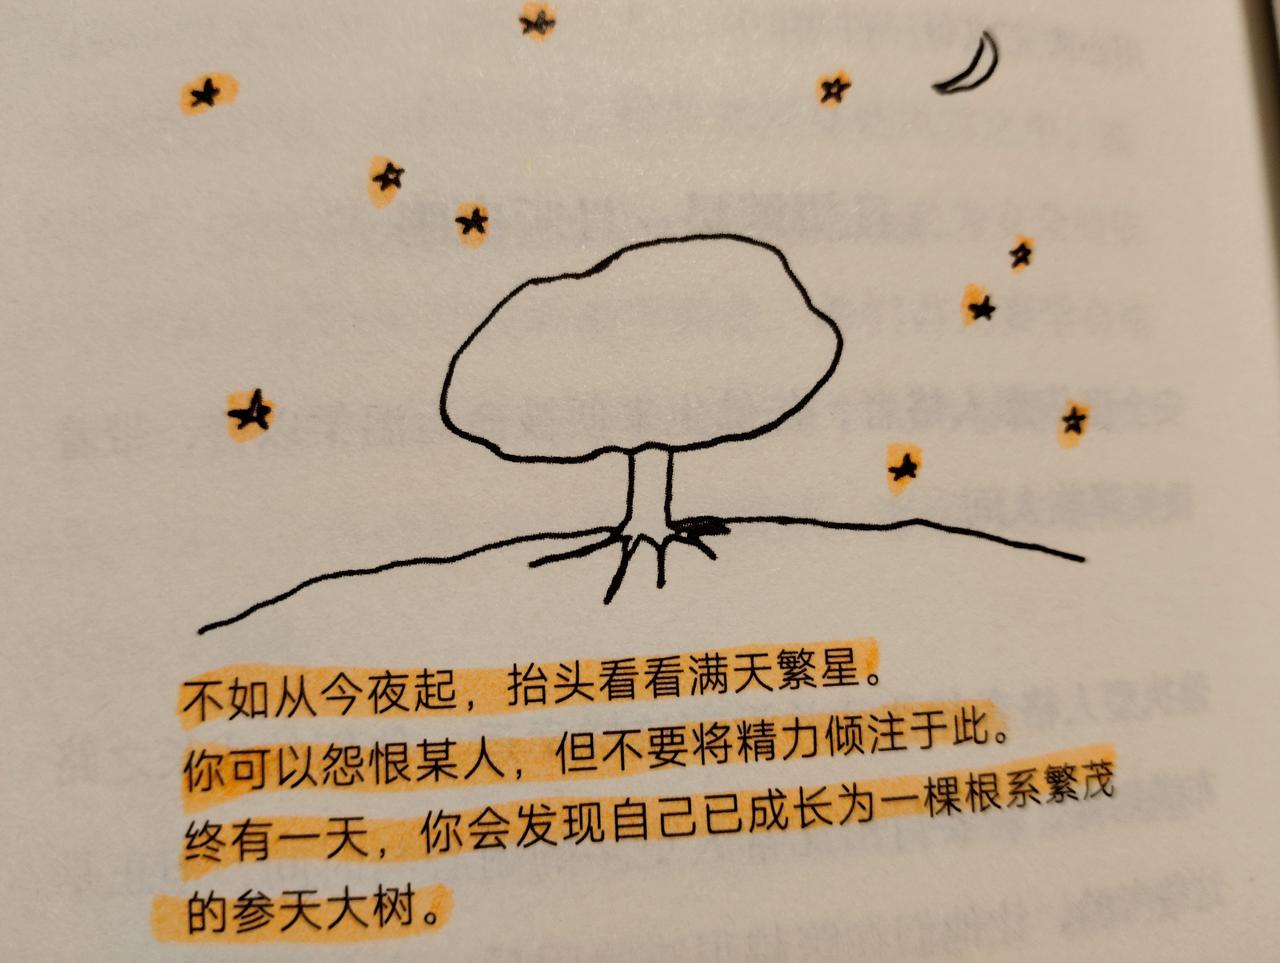 不如从今夜起，抬头看看满天繁星。
你可以怨恨某人，但不要将精力倾注于此。
终有一天，你会发现自己已成长为一棵根系繁茂
的参天大树。